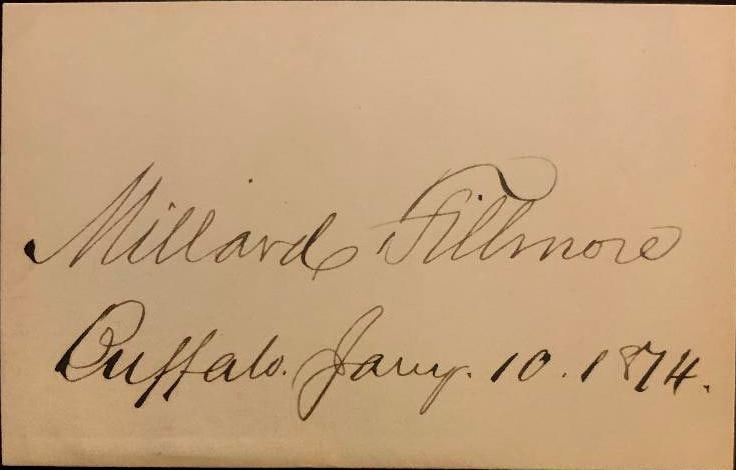 Millard Fillmore
Buffalo. Jany. 10. 1874.